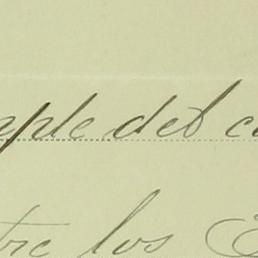 mple del c
tre los E